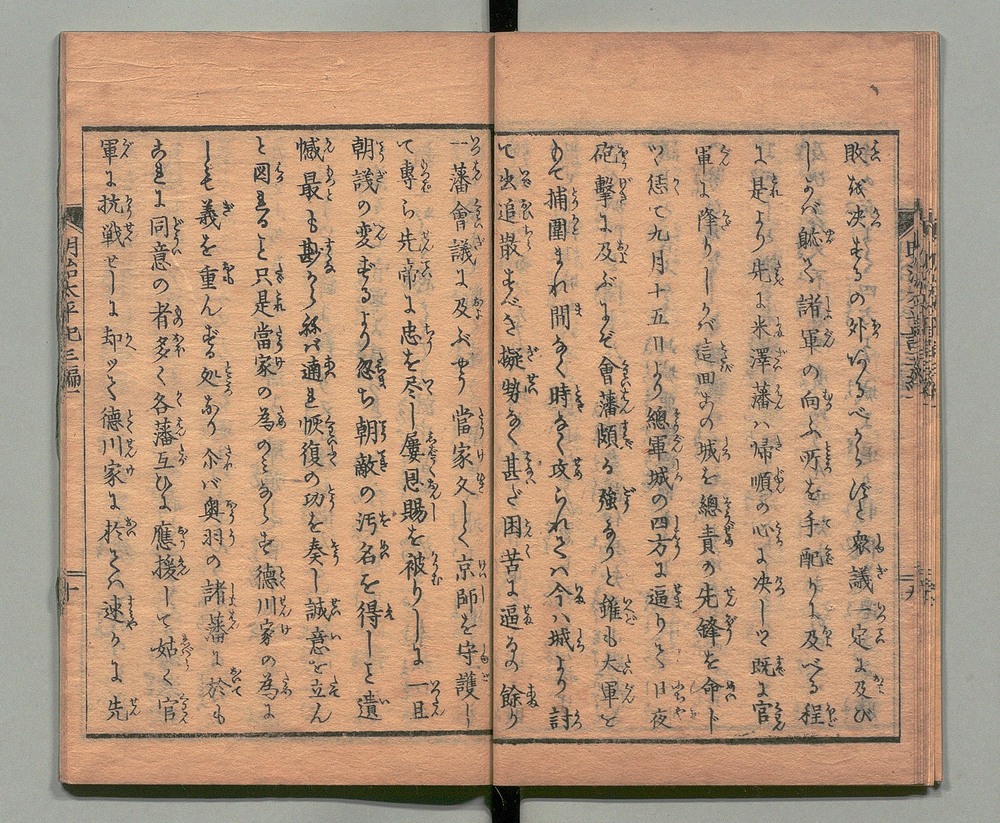 敗を決するの外あるべからずと衆議一定に及び
しかば躰て諸軍の向ふ所を手配りに及べる程
に是より先に米澤藩ハ帰順の心に决しツヽ既に官
軍に降りしかバ這回この城を總責の先鋒を命ド
ツヽ偖て九月十五日より總軍城の四方に逼りて日夜
砲撃に及ぶにぞ會藩頗る強なりと雖も大軍を
もて捕圍まれ間なく時なく攻られてハ今ハ城より討
て出追散すべき擬勢なく甚だ困苦に逼るの餘り
一藩會議に及ぶやう當家久しく京師を守護し
て専ら先帝に忠を尽し屡恩賜を被りしに一旦
朝議の変ずるより忽ち朝敵の汚名を得しと遺
憾最も尠からねバ適れ恢復の功を奏し誠意を立ん
と図れると只是當家の為のみならず徳川家の為に
しも義を重んずる処なり尓バ奥羽の諸藩に於も
これに同意の者多く各藩互ひに應援して姑く官
軍に抗戦せしに却ツて徳川家に於てハ速かに先
明治太平記三編一
十
九